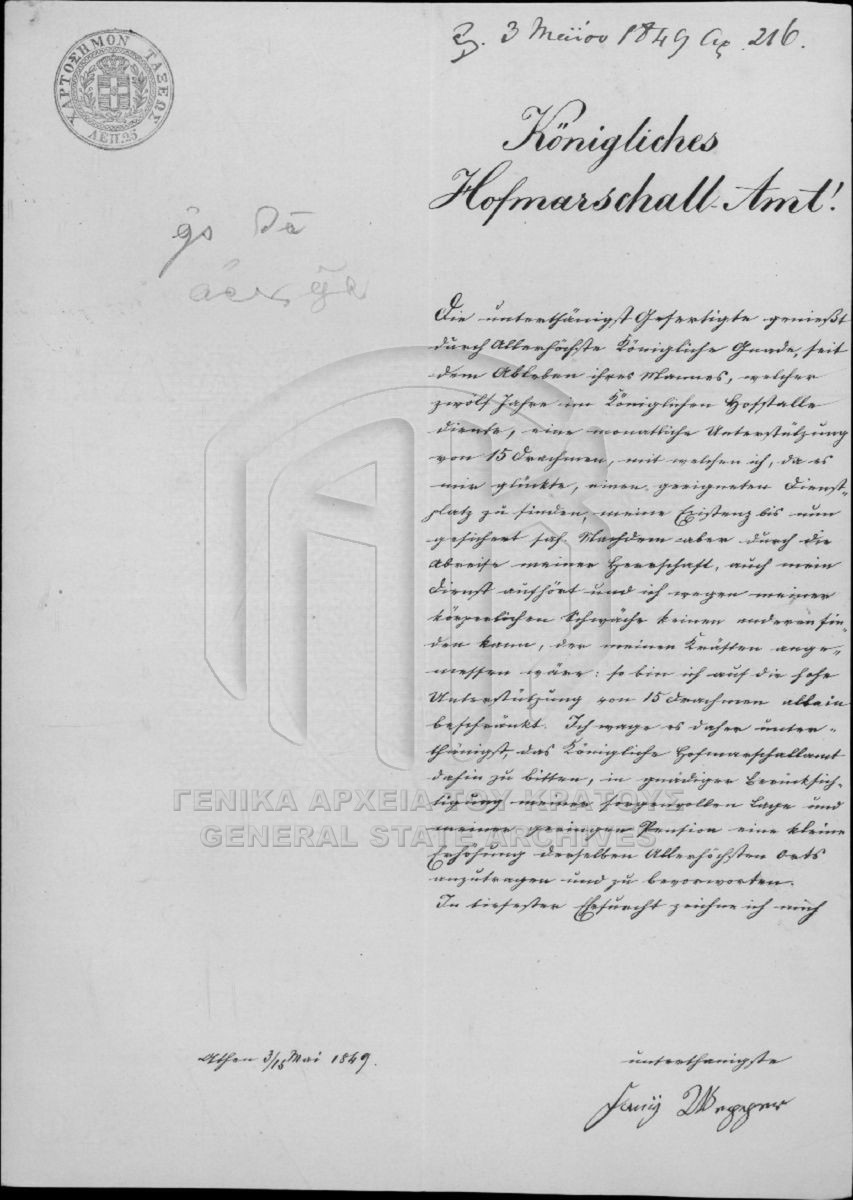 ΧΑΡΤΟΣΗΜΟΝ ΤΑΞΕΩΣ
ΛΕΠ. 25
3 Μαΐου 1849 Αρ. 216.
Königliches
Hofmarschall-Amt!
Die unterthänigst Gefertigte genießt
durch Allerhöchste Königliche Gnade, seit
dem Ableben ihres Mannes, welcher
zwölf Jahre im Königlichen Hofstalle
diente, eine monatliche Unterstützung
von 15 Drachmen, mit welchen ich, da es
mir glückte, einen geeigneten Dienst-
platz zu finden, meine Existenz bis nun
gesichert sah. Nachdem aber durch die
Abreise meiner Herrschaft, auch mein
Dienst aufhört und ich wegen meiner
körperlichen Schwäche keinen anderen fin-
den kann, der meinen Kräften ange-
messen wäre: so bin ich auf die hohe
Unterstützung von 15 Drachmen allein
beschränkt. Ich wage es daher unter-
thänigst, das Königliche Hofmarschallamt
dahin zu bitten, in gnädiger Berücksich-
tigung meiner sorgenvollen Lage und
meiner geringen Pension eine kleine
Erhöhung derselben Allerhöchsten Orts
anzutragen und zu bevorworten.
In tiefester Ehrfurcht zeichne ich mich
Athen 3/15 Mai 1849.
unterthänigste
Fany Wepper
ΓΕΝΙΚΑ ΑΡΧΕΙΑ ΤΟΥ ΚΡΑΤΟΥΣ
GENERAL STATE ARCHIVES